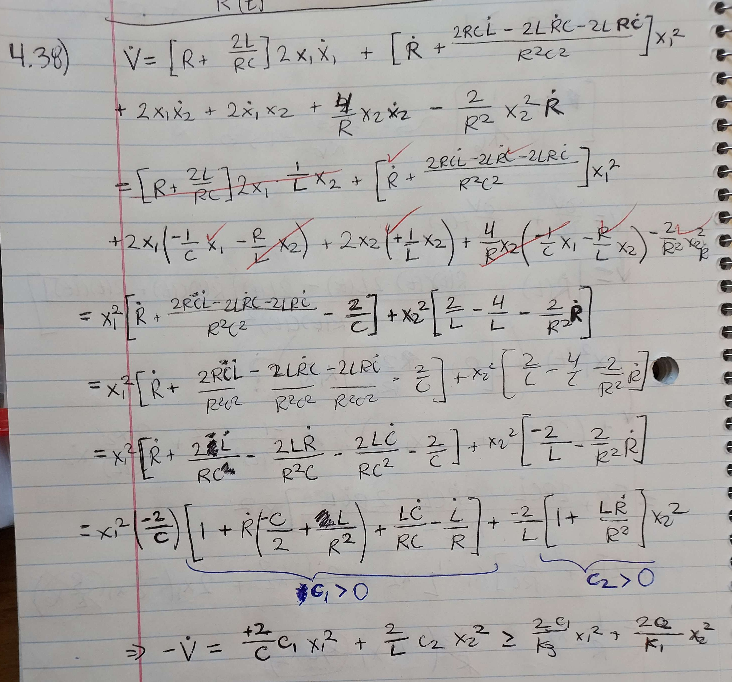 R(t)
4.38) V̇ = [R + 2L/RC] 2x₁ẋ₁ + [Ṙ + (2RCL̇ - 2LṘC - 2LRĊ)/R²C²] x₁²
+ 2x₁ẋ₂ + 2ẋ₁x₂ + 4/R x₂ẋ₂ - 2/R² x₂² Ṙ
= [R + 2L/RC] 2x₁ 1/L x₂ + [Ṙ + (2RCL̇ - 2LṘC - 2LRĊ)/R²C²] x₁²
+ 2x₁(-1/C x₁ - R/L x₂) + 2x₂(+1/L x₂) + 4/R x₂(-1/C x₁ - R/L x₂) - 2/R² x₂² Ṙ
= x₁² [Ṙ + (2RCL̇ - 2LṘC - 2LRĊ)/R²C² - 2/C] + x₂² [2/L - 4/L - 2/R² Ṙ]
= x₁² [Ṙ + 2RCL̇/R²C² - 2LṘC/R²C² - 2LRĊ/R²C² - 2/C] + x₂² [2/L - 4/L - 2/R² Ṙ]
= x₁² [Ṙ + 2L̇/RC - 2LṘ/R²C - 2LĊ/RC² - 2/C] + x₂² [-2/L - 2/R² Ṙ]
= x₁² (-2/C) [1 + Ṙ(-C/2 + L/R²) + LĊ/RC - L̇/R] + -2/L [1 + LṘ/R²] x₂²
c₁ > 0 c₂ > 0
⇒ -V̇ = +2/C c₁ x₁² + 2/L c₂ x₂² ≥ 2c₁/k₃ x₁² + 2c₂/k₁ x₂²